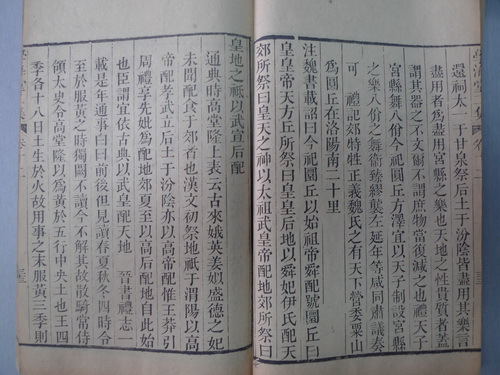 還祠太一于甘泉祭后土于汾陰皆盡用其樂言
盡用者為盡用宮縣之樂也天地之性貴質者蓋
謂其器之不文爾不謂庶物當復減之也禮天子
宮縣舞八佾今祀圜丘方澤宜以天子制設宮縣
之樂八佾之舞衛臻繆襲左延年等咸同肅議
奏可　禮記郊特牲正義魏氏之有天下營委粟山
為圜丘在洛陽南二十里
注魏書載詔曰今祀圜丘以始祖帝舜配號圜丘
皇皇帝天方丘所祭曰皇皇后地以舜妃伊氏配天
郊所祭曰皇天之神以太祖武皇帝配地郊所祭曰
皇地之祇以武宣后配
通典時高堂隆上表云古來娥英姜姒盛德之妃
未聞配食于郊者也漢文初祭地祇于渭陽以高
帝配孝武立后土于汾陰亦以高帝配惟王莽引
周禮享先妣為配地郊夏至以高后配地自此始
也臣謂宜依古典以武皇配天地　晉書禮志一
載是年通事白曰前後但見讀春夏秋冬四時令
至於服黃之時獨闕不讀今不解其故散騎常侍
領太史令高堂隆以為黃於五行中央土也王四
季各十八日土生於火故用事之末服黃三季則